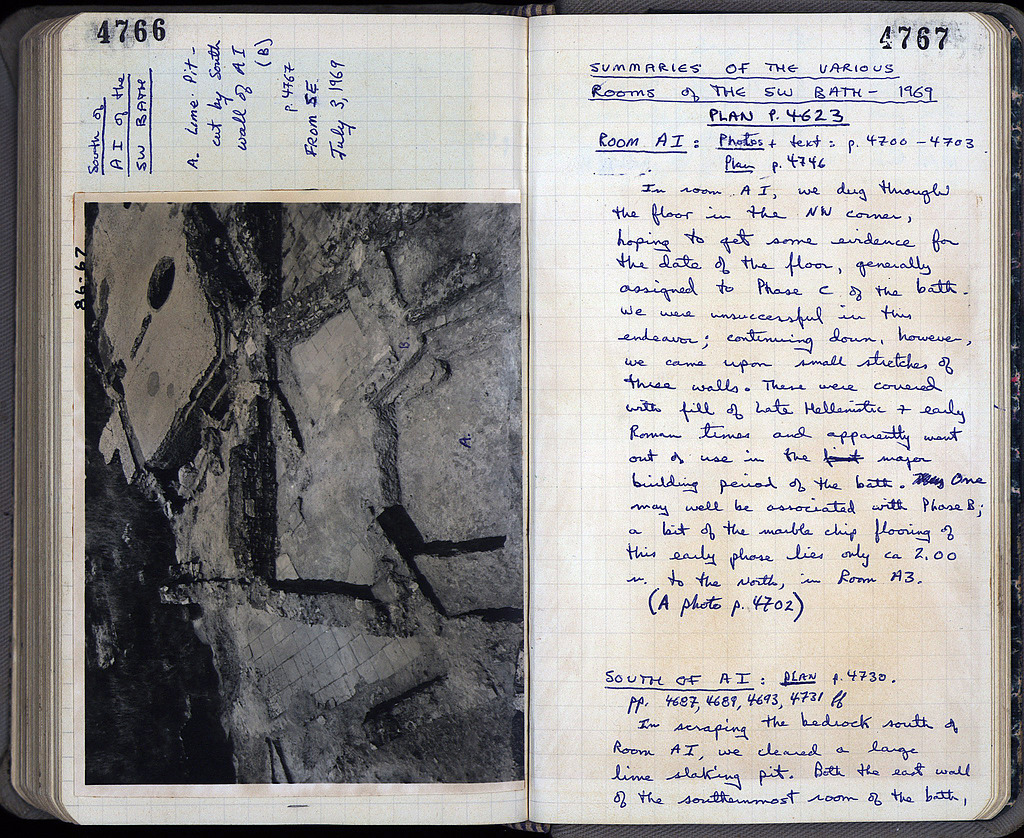 4766
South of
AI of the
SW BATH
A. Lime Pit -
cut by South
wall of AI
(B)
p. 4767
FROM SE.
July 3, 1969
86-67
B.
A.
4767
SUMMARIES OF THE VARIOUS
ROOMS of THE SW BATH - 1969
PLAN P. 4623
ROOM AI : Photos + text : p. 4700 - 4703.
Plan p. 4746
In room AI, we dug through
the floor in the NW corner,
hoping to get some evidence for
the date of the floor, generally
assigned to Phase C of the bath.
We were unsuccessful in this
endeavor; continuing down, however,
we came upon small stretches of
three walls. These were covered
with fill of Late Hellenistic + early
Roman times and apparently went
out of use in the first major
building period of the bath. One
may well be associated with Phase B;
a bit of the marble chip flooring of
this early phase lies only ca 2.00
m. to the north, in Room A3.
(A photo p. 4702)
SOUTH OF AI : PLAN p. 4730.
pp. 4687, 4689, 4693, 4731 ff
In scraping the bedrock south of
Room AI, we cleared a large
lime slaking pit. Both the east wall
of the southernmost room of the bath,